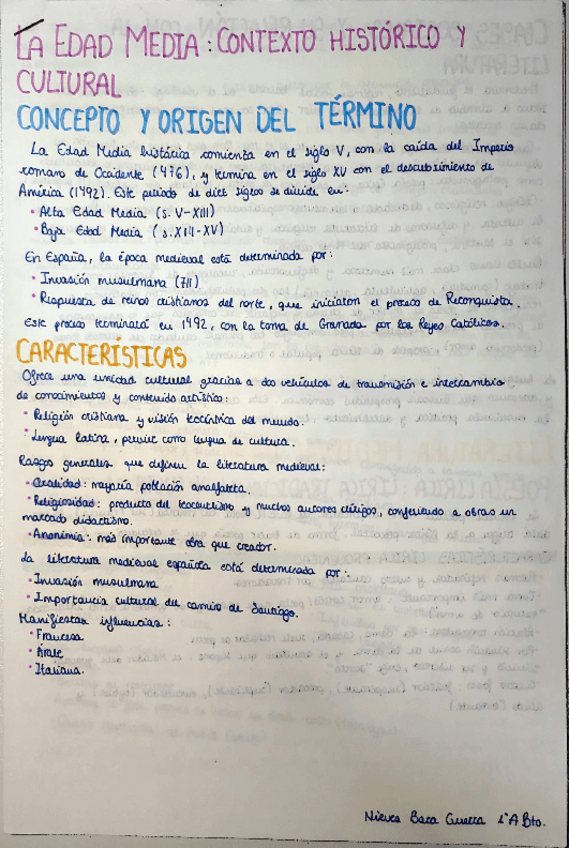 LA EDAD MEDIA: CONTEXTO HISTÓRICO Y
CULTURAL
CONCEPTO Y ORIGEN DEL TÉRMINO
La Edad Media histórica comienza en el siglo V, con la caída del Imperio
romano de Occidente (476), y termina en el siglo XV con el descubrimiento de
América (1492). Este periodo de diez siglos se divide en:
• Alta Edad Media (s. V-XIII)
• Baja Edad Media (s. XIII-XV)
En España, la época medieval está determinada por:
• Invasión musulmana (711)
• Respuesta de reinos cristianos del norte, que iniciaron el proceso de Reconquista.
Este proceso terminará en 1492, con la toma de Granada por los Reyes Católicos.
CARACTERÍSTICAS
Ofrece una unidad cultural gracias a dos vehículos de transmisión e intercambio
de conocimientos y contenido artístico:
• Religión cristiana y visión teocéntrica del mundo.
• Lengua latina, pervive como lengua de cultura.
Rasgos generales que definen la literatura medieval:
• Oralidad: mayoría población analfabeta.
• Religiosidad: producto del teocentrismo y muchos autores clérigos, confieriendo a obras un
marcado didactismo.
• Anonimia: más importante obra que creador.
La literatura medieval española está determinada por:
• Invasión musulmana
• Importancia cultural del camino de Santiago.
Manifiestas influencias:
• Francesa
• Árabe
• Italiana.
Nieves Baca Guerra 1ºA Bto.